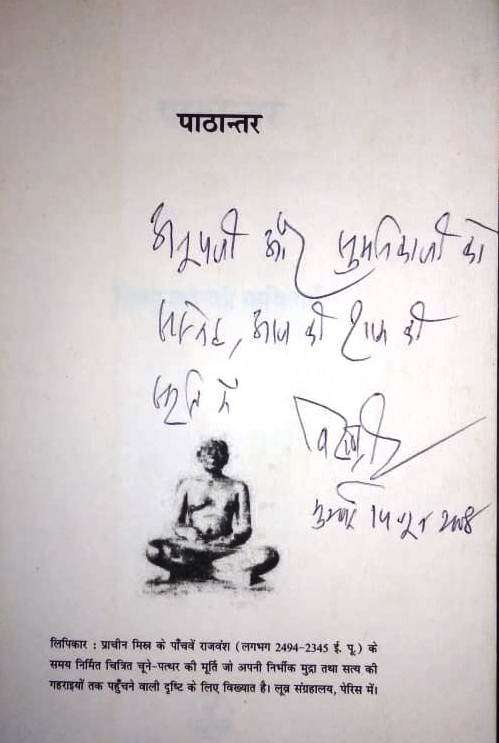 पाठान्तर
अनूपजी और सुमनिकाजी को
सस्नेह, आज की शाम की
स्मृति में
मुम्बई 2008
लिपिकार : प्राचीन मिस्र के पाँचवें राजवंश (लगभग 2494-2345 ई. पू.) के
समय निर्मित चित्रित चूने-पत्थर की मूर्ति जो अपनी निर्भीक मुद्रा तथा सत्य की
गहराइयों तक पहुँचने वाली दृष्टि के लिए विख्यात है। लूव्र संग्रहालय, पेरिस में।